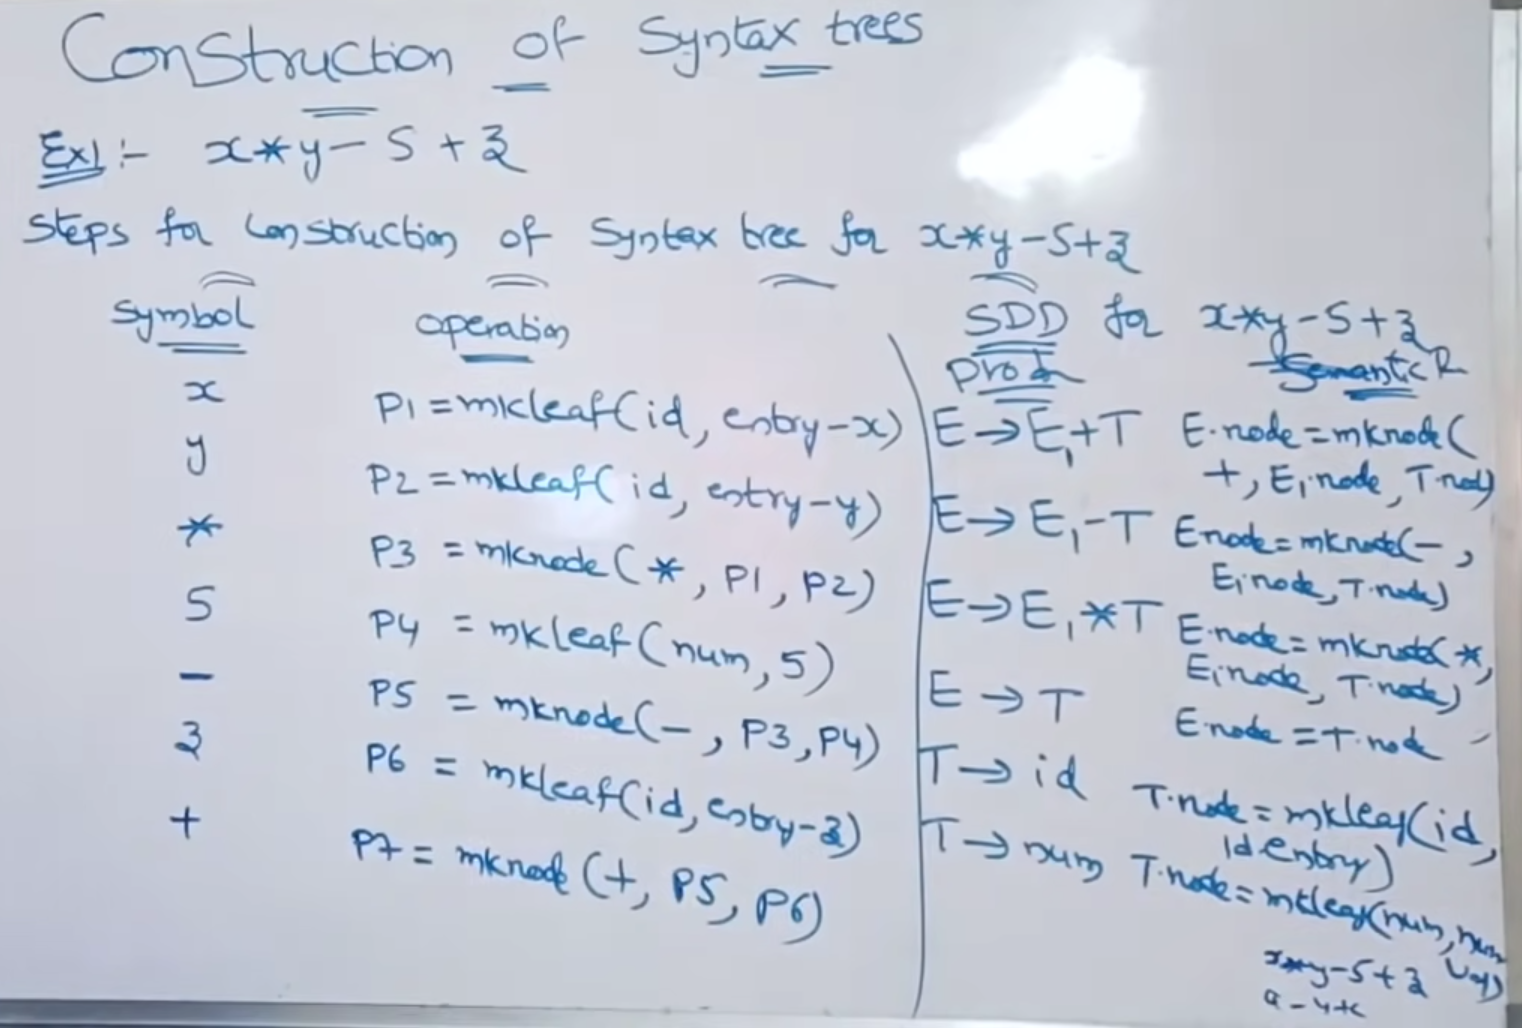 Construction of Syntax trees
Ex1:- x*y-5+z
Steps for Construction of Syntax tree for x*y-5+z
Symbol operation
x P1=mkleaf(id, entry-x)
y P2=mkleaf(id, entry-y)
* P3 =mknode(*, P1, P2)
5 P4 =mkleaf(num,5)
- P5 =mknode(-, P3,P4)
z P6 = mkleaf(id,entry-z)
+ P7= mknode(+, P5, P6)
SDD for x*y-5+z
Prod Semantic R
E→E₁+T E.node=mknode(
+, E₁.node, T.node)
E→E₁-T E.node=mknode(-,
E₁.node, T.node)
E→E₁*T E.node=mknode(*,
E₁.node, T.node)
E→T E.node=T.node
T→id T.node=mkleaf(id,
id entry)
T→num T.node=mkleaf(num, num
val)
x*y-5+z
a-4+c